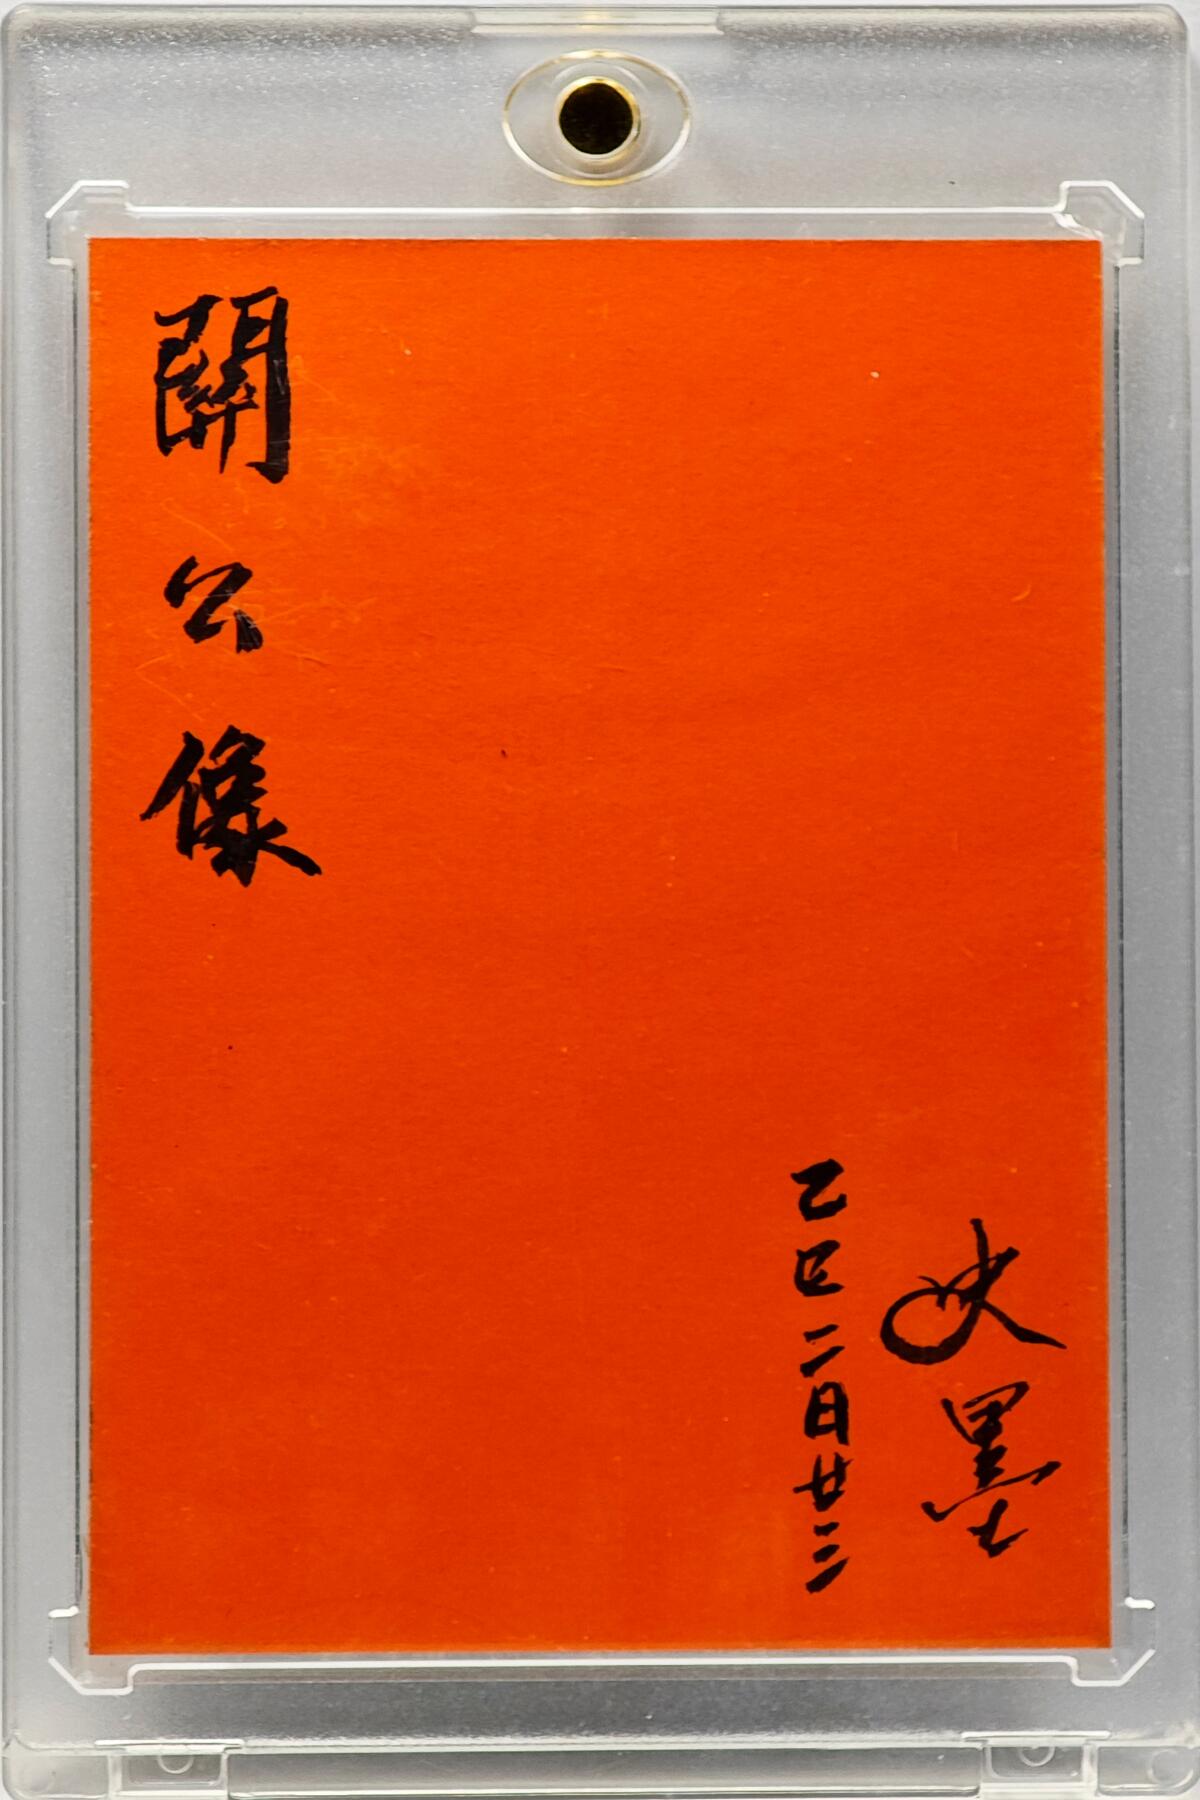 關公像
史墨
乙巳二月廿二